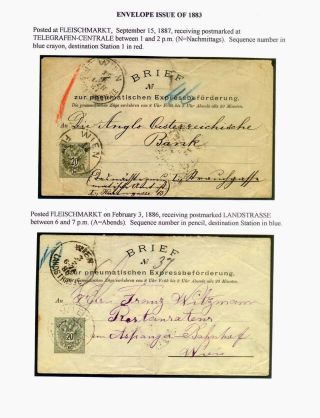 ENVELOPE ISSUE OF 1883
Posted at FLEISCHMARKT, September 15, 1887, receiving postmarked at
TELEGRAFEN-CENTRALE between 1 and 2 p.m. (N=Nachmittags). Sequence number in
blue crayon, destination Station 1 in red.
WIEN
BRIEF
zur pneumatischen Expressbeförderung.
An
Die Anglo Oesterreichische
Bank
WIEN
20
Posted FLEISCHMARKT on February 3, 1886, receiving postmarked LANDSTRASSE
between 6 and 7 p.m. (A=Abends). Sequence number in pencil, destination Station in blue.
BRIEF
No 37
WIEN
zur pneumatischen Expressbeförderung.
An
Franz Witzmann
Restaurateur
am Aspanger Bahnhof
Wien
20